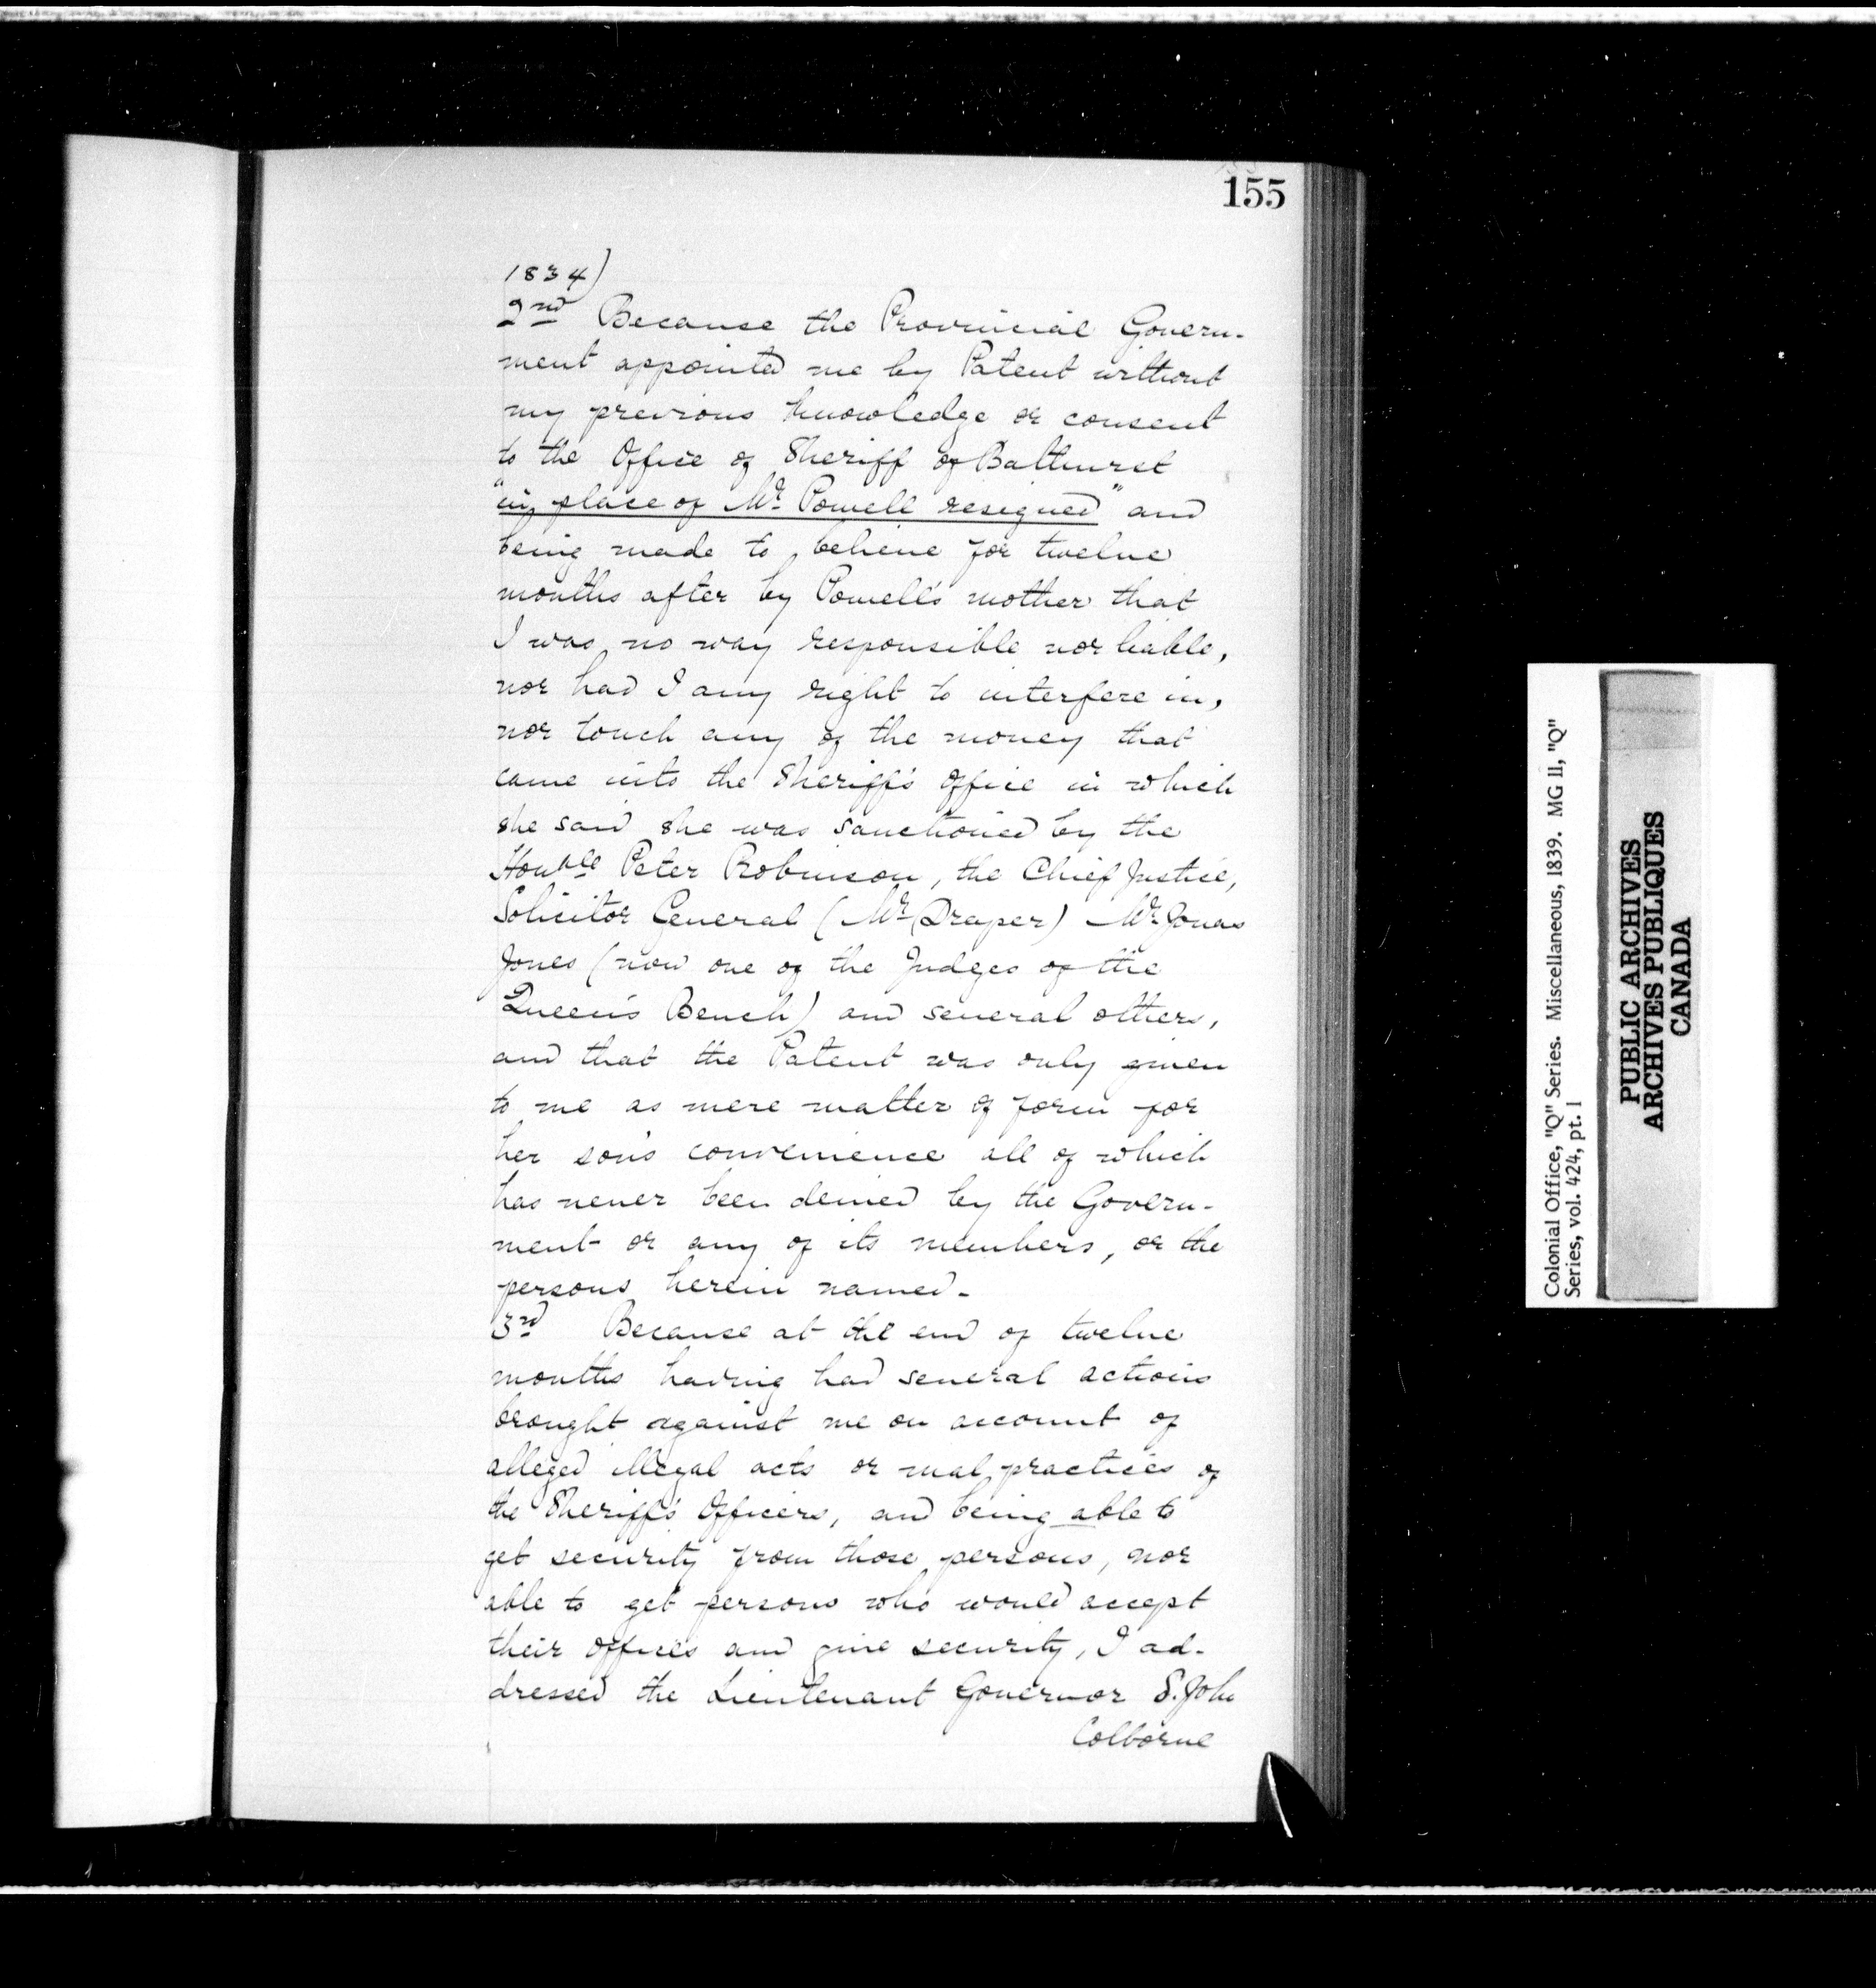 155
1834)
2nd Because the Provincial Govern-
ment appointed me by Patent without
my previous knowledge or consent
to the Office of Sheriff of Bathurst
"in place of Mr. Powell resigned" and
being made to believe for twelve
months after by Powell's mother that
I was no way responsible nor liable,
nor had I any right to interfere in,
nor touch any of the money that
came into the Sheriff's Office in which
she said she was sanctioned by the
Honble Peter Robinson, the Chief Justice,
Solicitor General (Mr Draper) Mr Jonas
Jones (now one of the Judges of the
Queen's Bench) and several others,
and that the Patent was only given
to me as mere matter of form for
her son's convenience all of which
has never been denied by the Govern-
ment or any of its members, or the
persons herein named.
3rd Because at the end of twelve
months having had several actions
brought against me on account of
alleged illegal acts or mal practices of
the Sheriff's Officers, and being able to
get security from those persons, nor
able to get persons who would accept
their offices and give security, I ad-
dressed the Lieutenant Governor S. John
Colborne
Colonial Office, "Q" Series. Miscellaneous, 1839. MG 11, "Q"
Series, vol. 424, pt. 1
PUBLIC ARCHIVES
ARCHIVES PUBLIQUES
CANADA